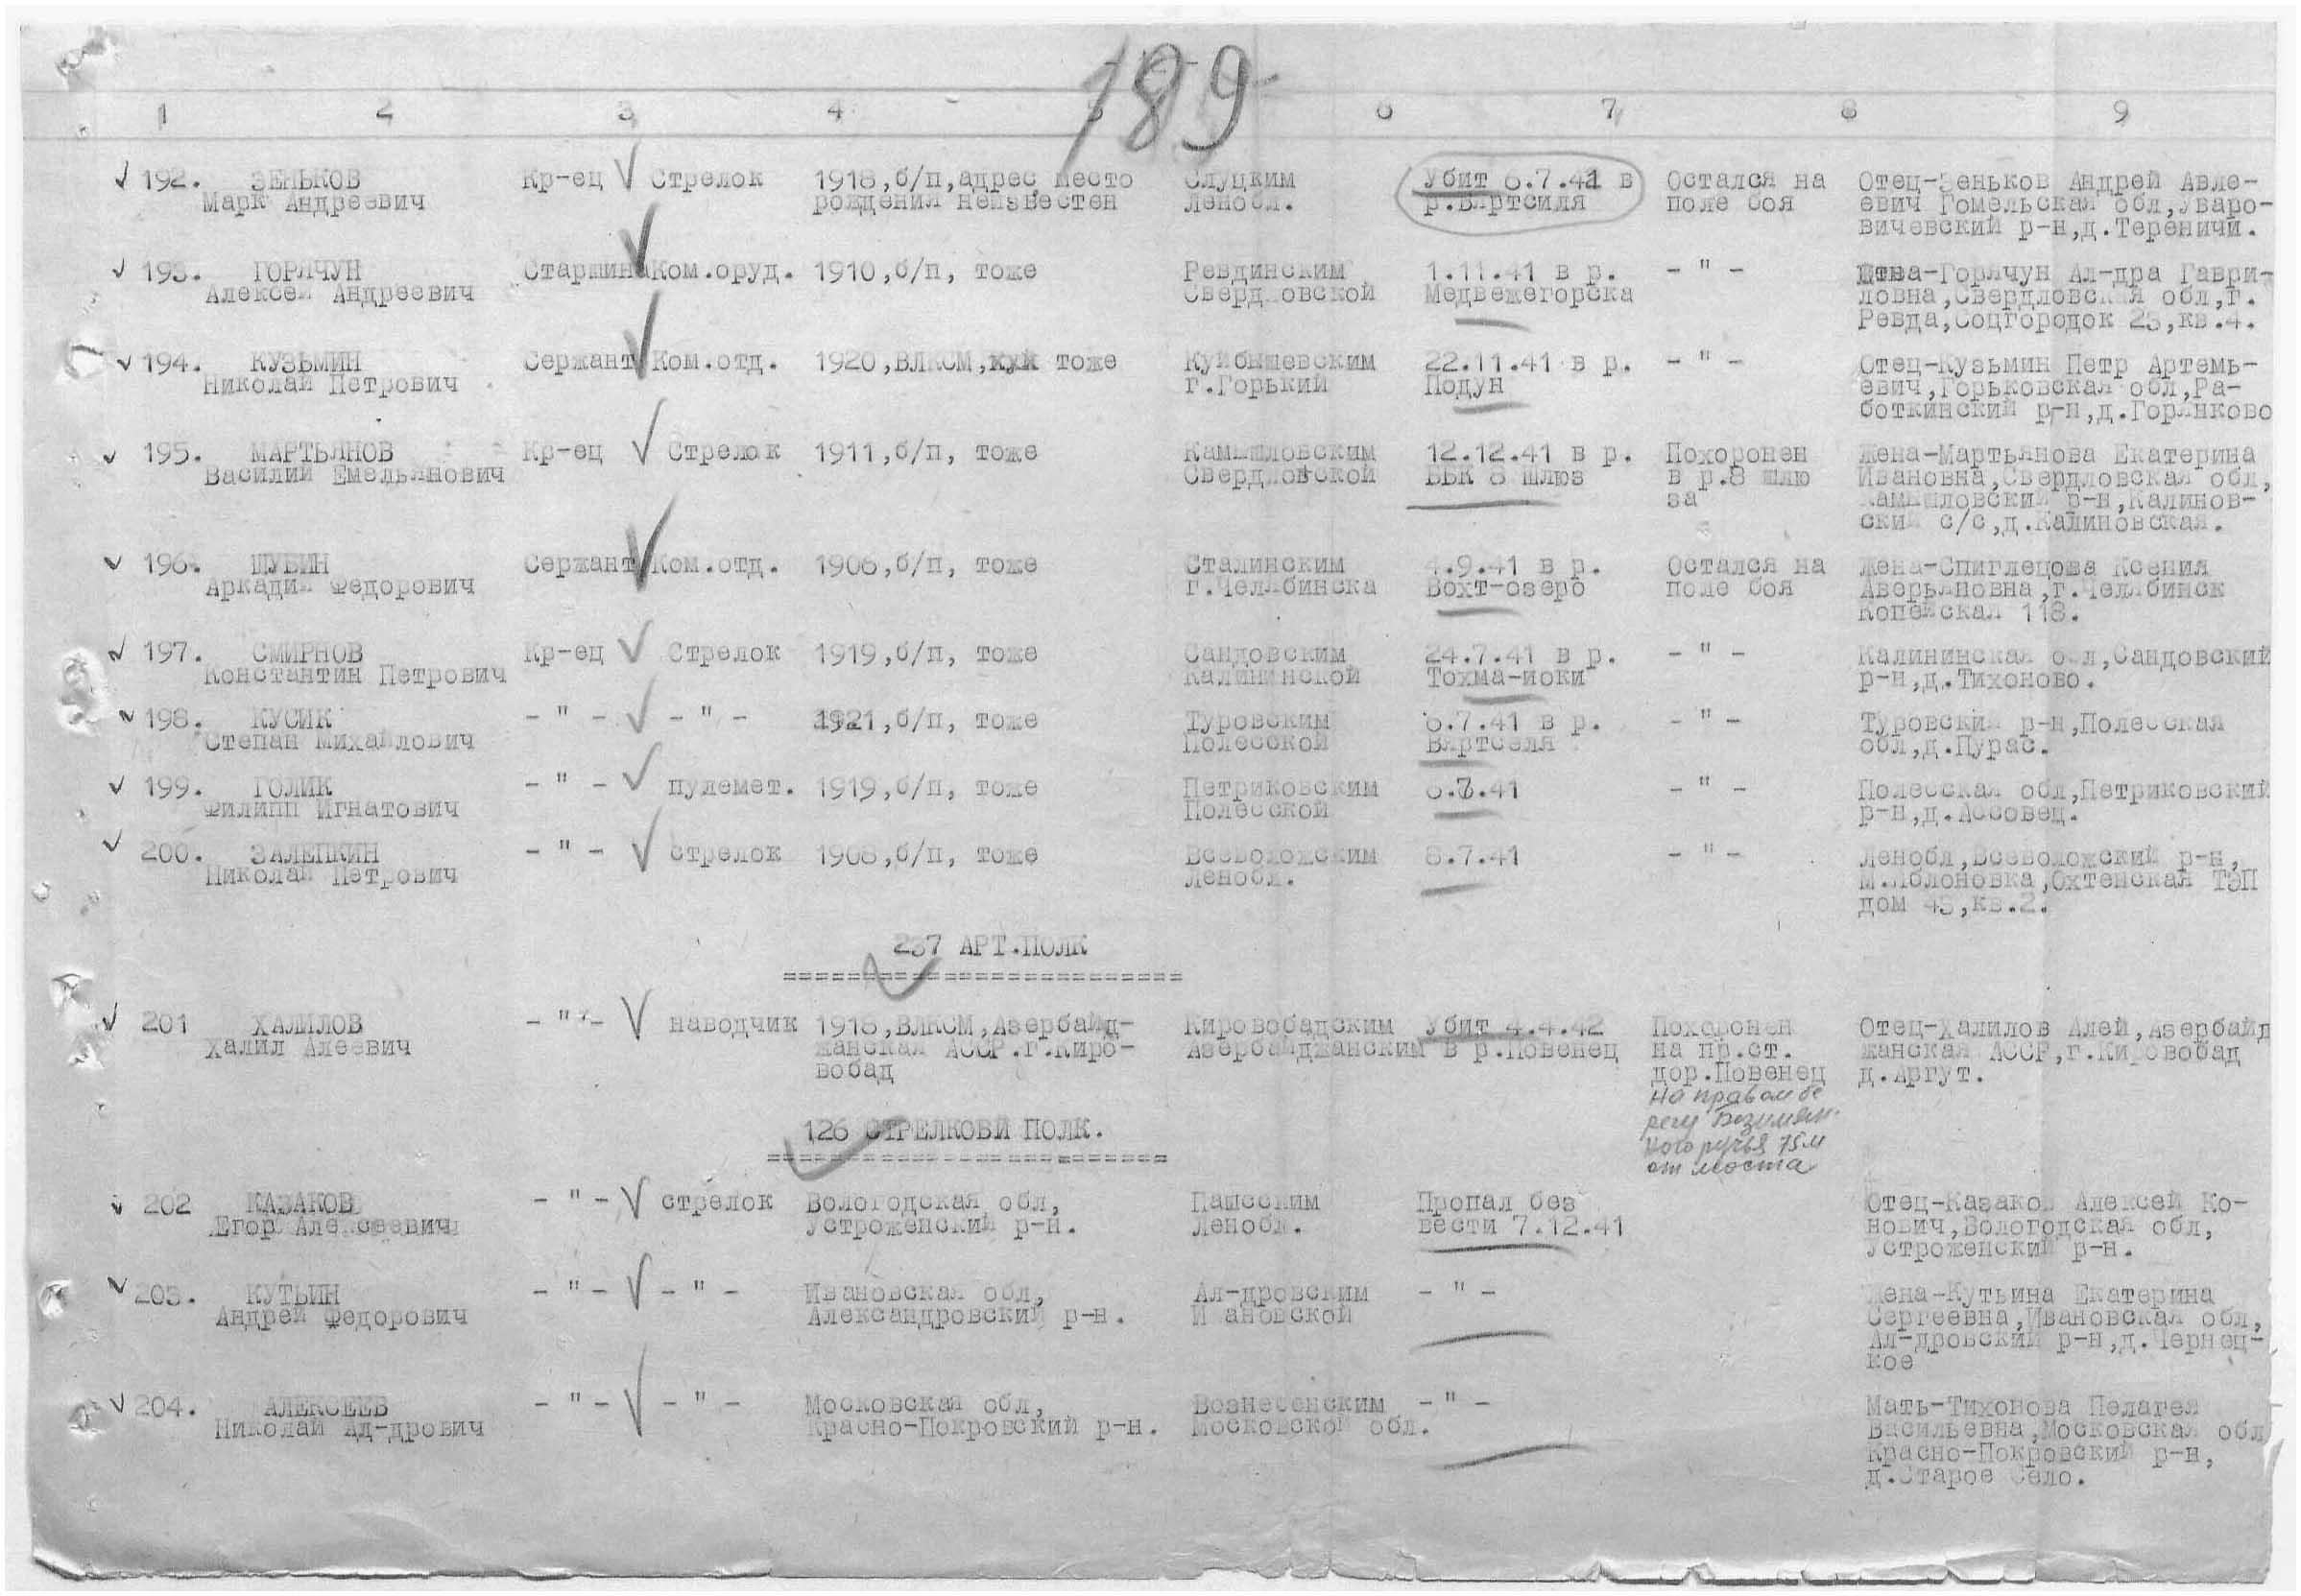 189
1 2 3 4 5 6 7 8 9
192. ЗЕНЬКОВ Кр-ец Стрелок 1918,б/п,адрес, место Слуцким Убит 6.7.41 в Остался на Отец-Зеньков Андрей Авле-
Марк Андреевич рождения неизвестен Ленобл. р.Вяртсиля поле боя евич Гомельская обл,Уваро-
вичевский р-н,д.Тереничи.
193. ГОРЯЧУН Старшина Ком.оруд. 1910,б/п, тоже Ревдинским 1.11.41 в р. - " - Жена-Горячун Ал-дра Гаври-
Алексей Андреевич Свердловской Медвежегорска ловна,Свердловская обл,г.
Ревда,Соцгородок 23,кв.4.
194. КУЗЬМИН Сержант Ком.отд. 1920,ВЛКСМ, тоже Куйбышевским 22.11.41 в р. - " - Отец-Кузьмин Петр Артемь-
Николай Петрович г.Горький Подун евич,Горьковская обл,Ра-
боткинский р-н,д.Горянково
195. МАРТЬЯНОВ Кр-ец Стрелок 1911,б/п, тоже Камышловским 12.12.41 в р. Похоронен Жена-Мартьянова Екатерина
Василий Емельянович Свердловской ББК 8 шлюз в р.8 шлю Ивановна,Свердловская обл,
за Камышловский р-н,Калинов-
ский с/с,д.Калиновская.
196. ШУБИН Сержант Ком.отд. 1906,б/п, тоже Сталинским 4.9.41 в р. Остался на Жена-Спиглецова Ксения
Аркадий Федорович г.Челябинска Вохт-озеро поле боя Аверьяновна,г.Челябинск
Копейская 118.
197. СМИРНОВ Кр-ец Стрелок 1919,б/п, тоже Сандовским 24.7.41 в р. - " - Калининская обл,Сандовский
Константин Петрович Калининской Тохма-иоки р-н,д.Тихоново.
198. КУСИК - " - - " - 1921,б/п, тоже Туровским 6.7.41 в р. - " - Туровский р-н,Полесская
Степан Михайлович Полесской Вяртселя обл,д.Пурас.
199. ГОЛИК - " - пулемет. 1919,б/п, тоже Петриковским 6.7.41 - " - Полесская обл,Петриковский
Филипп Игнатович Полесской р-н,д.Ассовец.
200. ЗАЛЕПКИН - " - стрелок 1908,б/п, тоже Всеволожским 8.7.41 - " - Ленобл,Всеволожский р-н,
Николай Петрович Ленобл. М.Яблоновка,Охтенская ТЭП
дом 45,кв.2.
237 АРТ.ПОЛК
=========================
201 ХАЛИЛОВ - " - наводчик 1918,ВЛКСМ,Азербайд- Кировобадским Убит 4.4.42 Похоронен Отец-Халилов Алей,Азербайд
Халил Алеевич жанская АССР.г.Киро- Азербайджанским в р.Повенец на пр.ст. жанская АССР,г.Кировобад
вобад дор.Повенец д.Аргут.
на правом бе
регу Безимян-
ного ручья 75м
от моста
126 СТРЕЛКОВЙ ПОЛК.
=========================
202 КАЗАКОВ - " - стрелок Вологодская обл, Пашским Пропал без Отец-Казаков Алексей Ко-
Егор Алексеевич Устроженский р-н. Ленобл. вести 7.12.41 нович,Вологодская обл,
Устроженский р-н.
203. КУТЬИН - " - - " - Ивановская обл, Ал-дровским - " - Жена-Кутьина Екатерина
Андрей Федорович Александровский р-н. И ановской Сергеевна,Ивановская обл,
Ал-дровский р-н,д.Чернец-
кое
204. АЛЕКСЕЕВ - " - - " - Московская обл, Вознесенским - " - Мать-Тихонова Пелагея
Николай Ал-дрович Красно-Покровский р-н. Московской обл. Васильевна,Московская обл
Красно-Покровский р-н,
д.Старое Село.